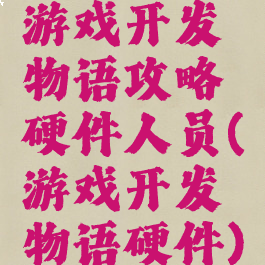 游戏开发
物语攻略
硬件人员(
游戏开发
物语硬件)